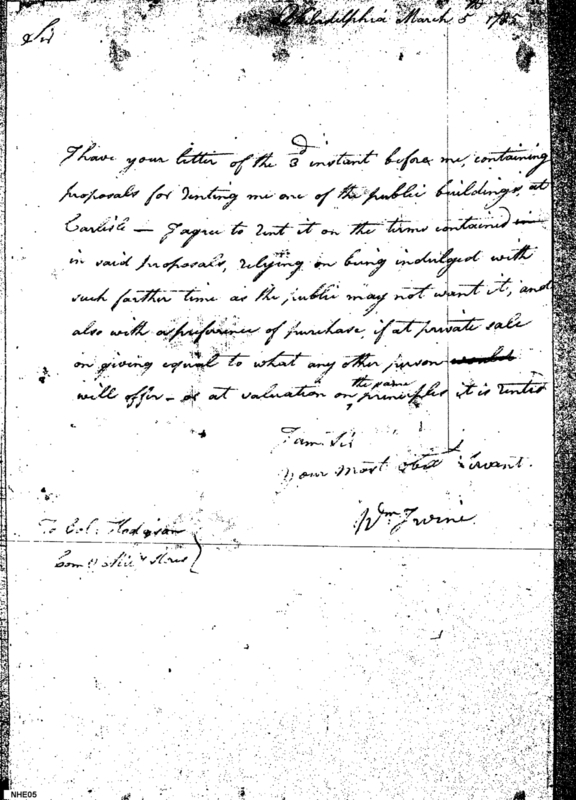 Philadelphia March 5th 1785
Sir
I have your letter of the 3d instant before me, containing
proposals for renting me one of the public buildings, at
Carlisle — I agree to rent it on the terms contained in
in said proposals, relying on being indulged with
such farther time as the public may not want it, and
also with a preference of purchase, if at private sale
on giving equal to what any other person would
the same
will offer — or at valuation on principles it is rented
I am Sir
your most Obed Servant.
Wm Irvine
To Col. Hodgson
Stores
NHE05